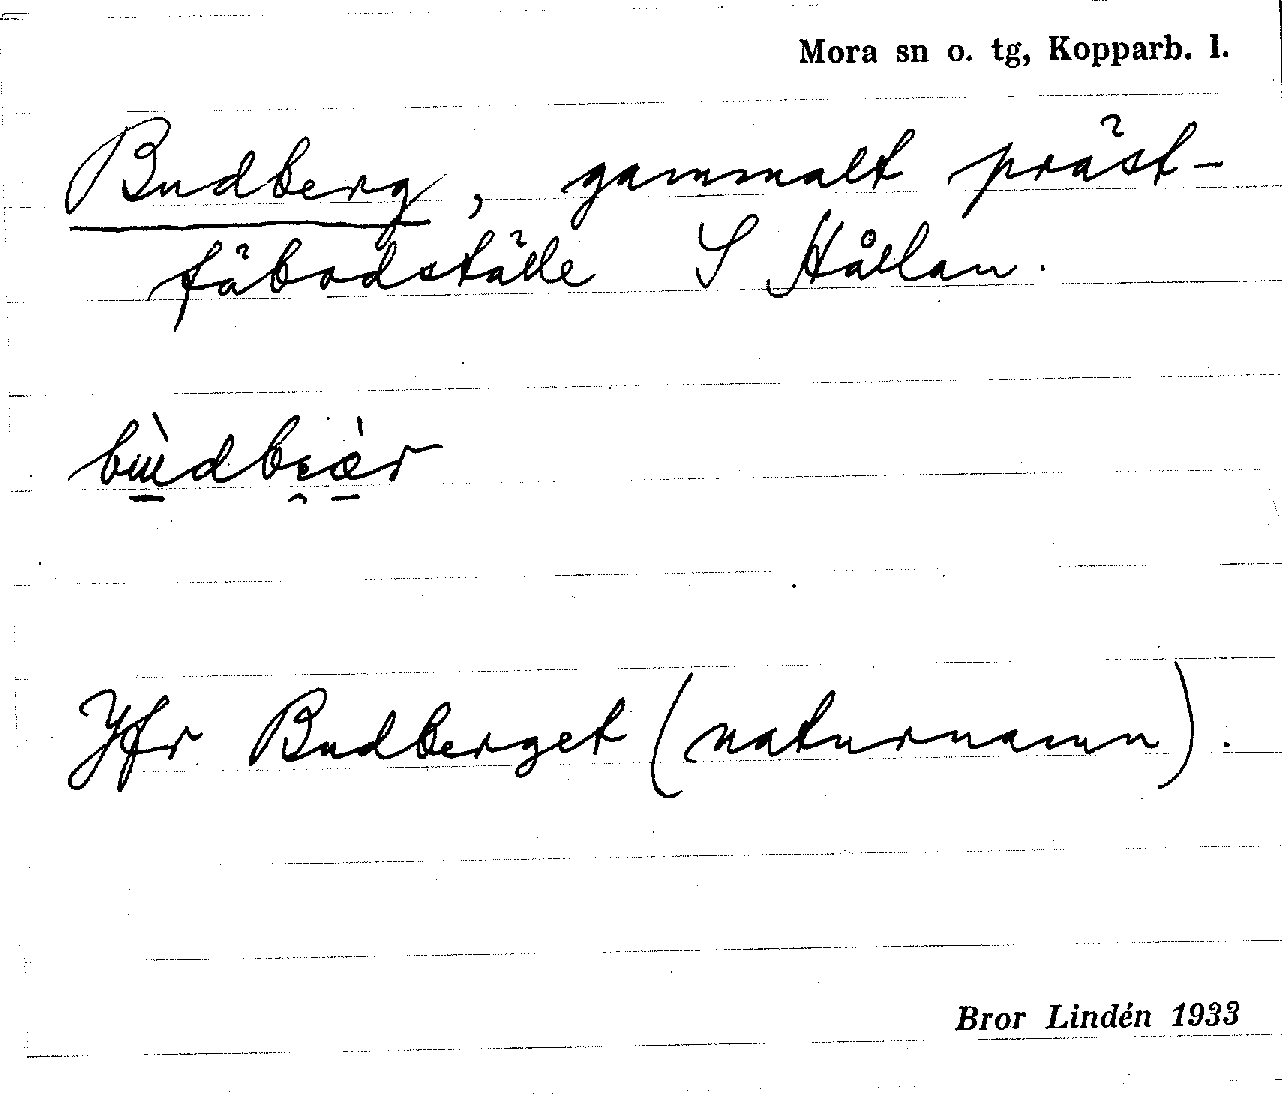 Mora sn o. tg, Kopparb. l.
Budberg, gammalt präst-
fäbodställe S Hållan.
Jfr Budberget (naturnamn).
Bror Lindén 1933